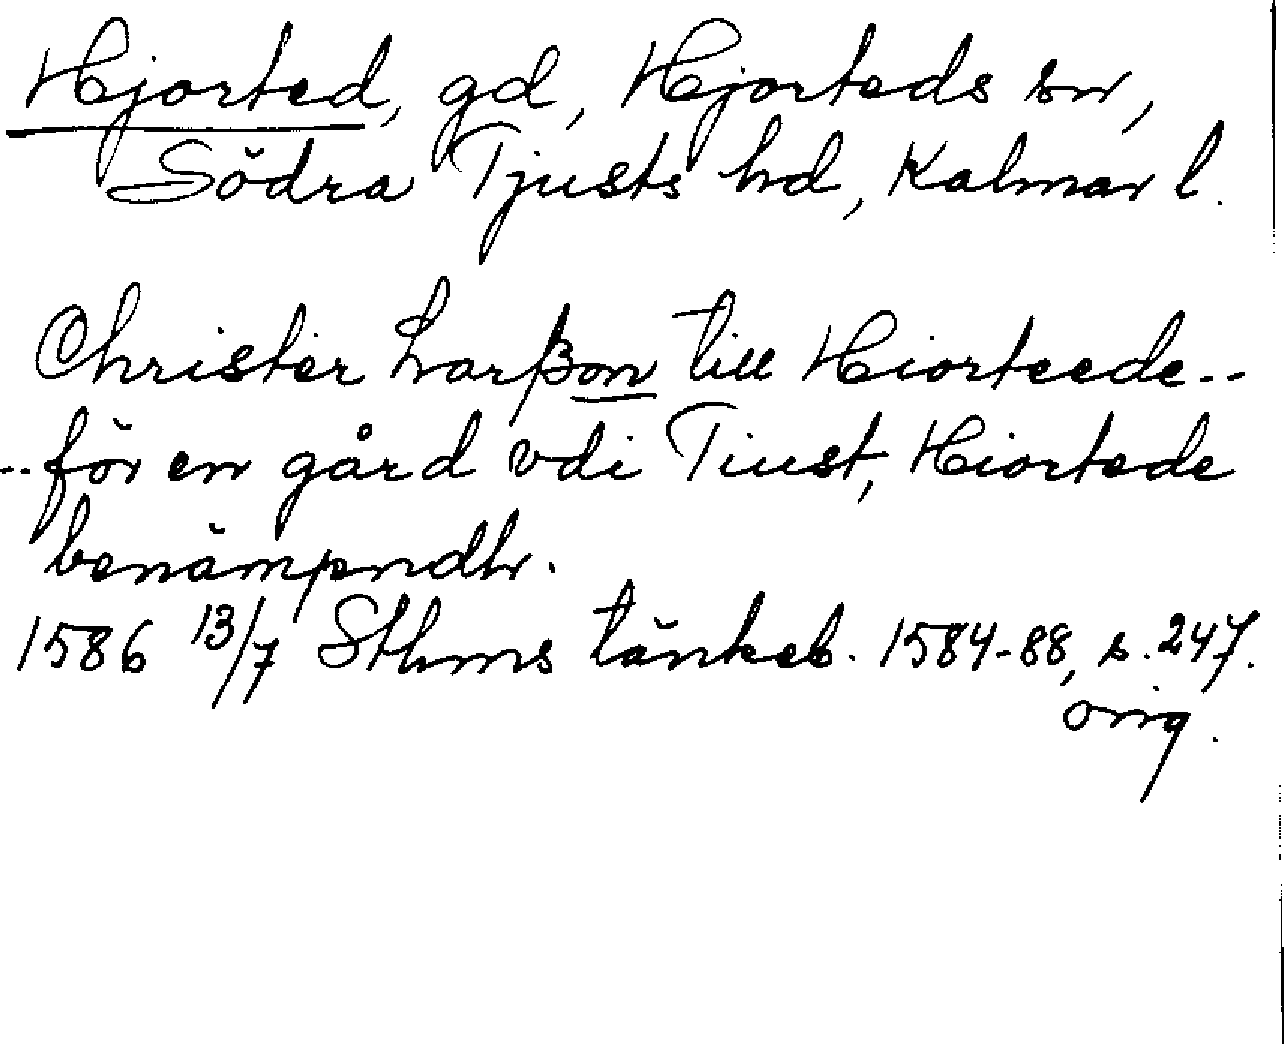 Hjorted, gd, Hjorteds sn,
Södra Tjusts hd, Kalmar l.
Christer Larßon till Hiorteede..
..för en gård vdi Tiust, Hiortede
benämpndh.
1586 13/7 Sthms tänkeb. 1584-88, s. 247.
orig.